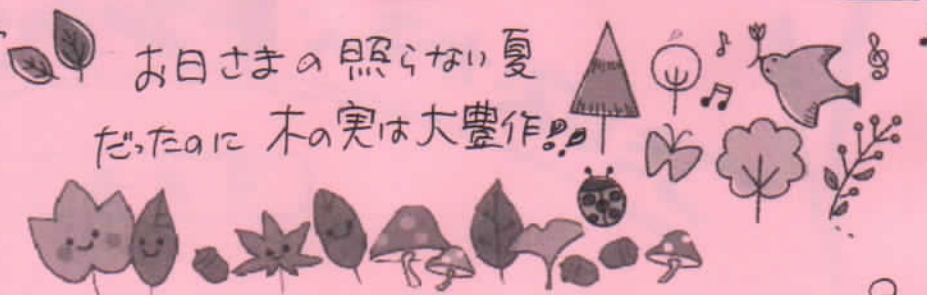 お日さまの照らない夏
だったのに 木の実は大豊作!!